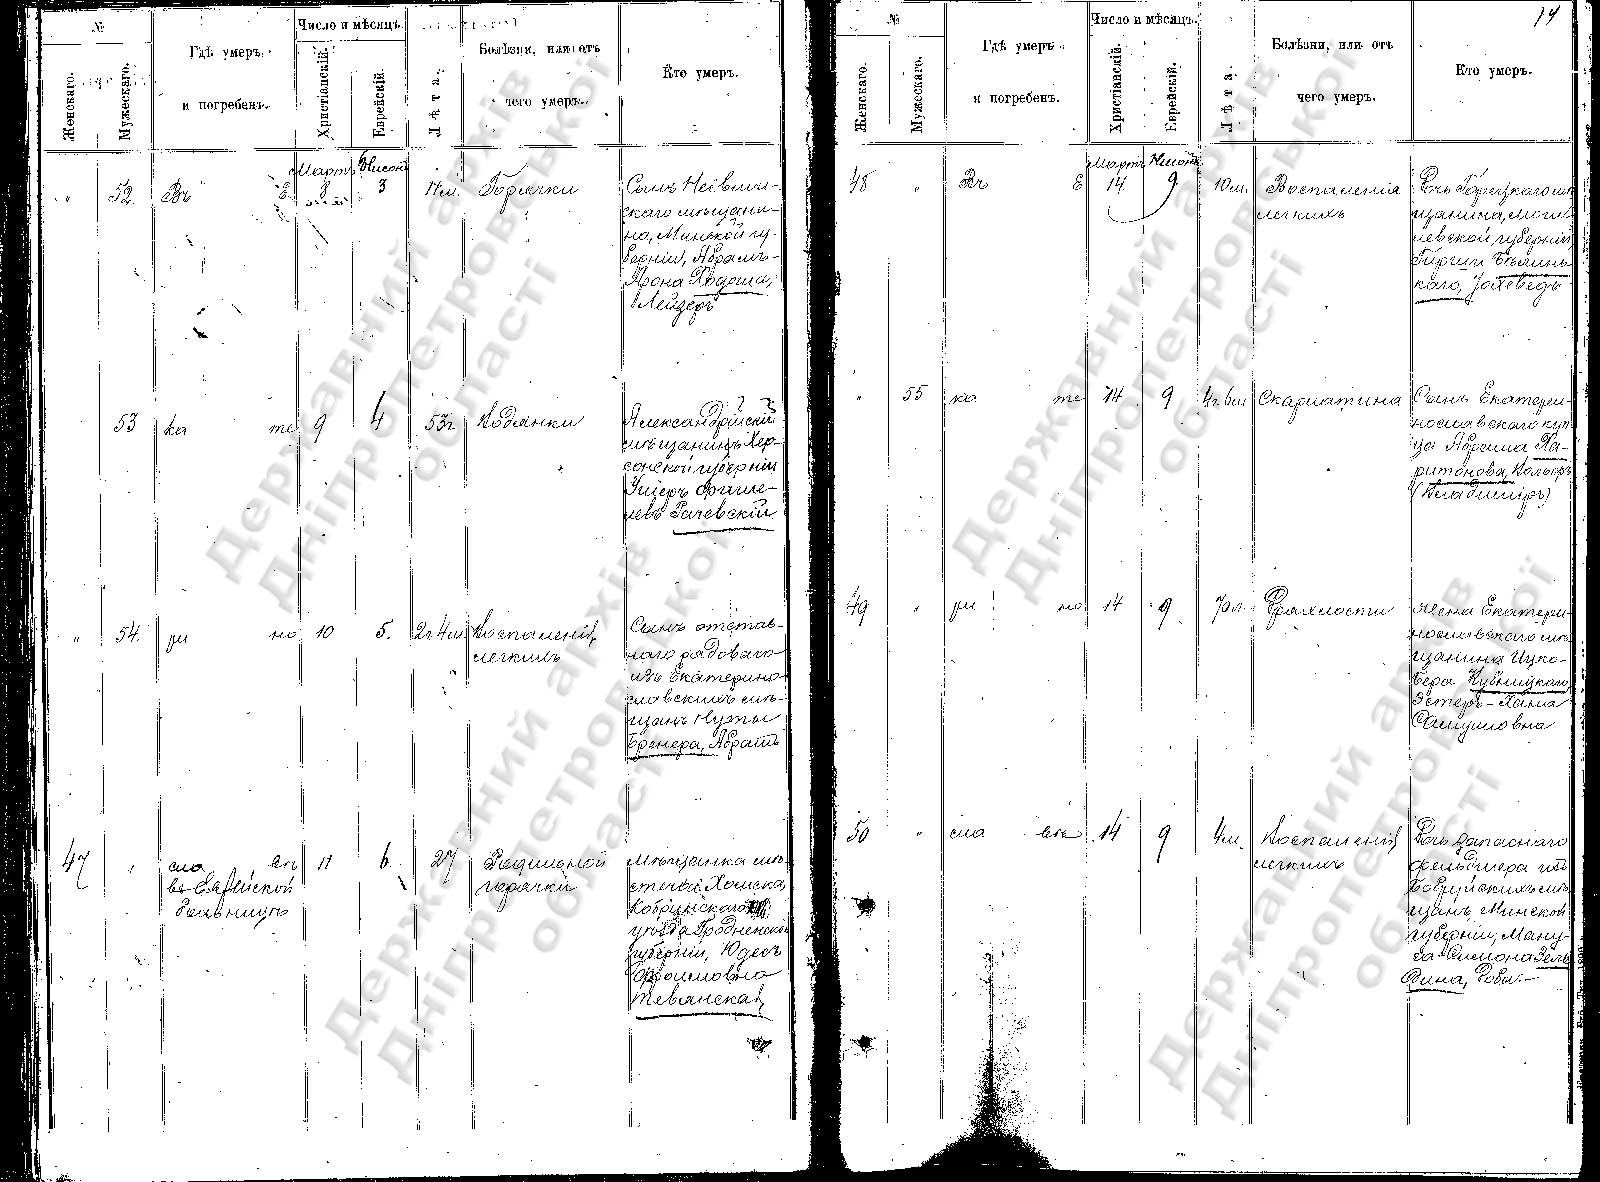 №
Число и мѣсяцъ.
Женскаго.
Мужескаго.
Гдѣ умеръ
и погребенъ.
Христіанскій.
Еврейскій.
Лѣта.
Болѣзни, или отъ
чего умеръ.
Кто умеръ.
Мартъ Нисонъ
" 52 Въ Е 8 3 11 м. Горячки
Сынъ
скаго мѣщани-
на, Минской гу-
берніи, Абрамъ-
Арона Хадоша,
Лейзеръ
53 ка те 9 4 53 г. Водянки
Александрійскій
мѣщанинъ Хер-
сонской губерніи
Ушеръ
левъ Рачевскій
" 54. ри но 10 5. 2 г 4 м. Воспаленія
легкихъ
Сынъ отстав-
наго рядоваго
изъ Екатерино-
славскихъ мѣ-
щанъ Нуты
Бренера, Абрамъ
47 " сла вѣ 11 6 27 Родильной
въ Еврейской горячки
больницѣ
Мѣщанка мѣ-
стечка Хомска,
Кобринскаго
уѣзда Гродненской
губерніи, Юдесъ
Фроимовна
Тевянская
14
№
Число и мѣсяцъ.
Женскаго.
Мужескаго.
Гдѣ умеръ
и погребенъ.
Христіанскій.
Еврейскій.
Лѣта.
Болѣзни, или отъ
чего умеръ.
Кто умеръ.
Мартъ Нисонъ
48 " Въ Е 14 9 10 м. Воспаленія
легкихъ
Дочь Горецкаго мѣ-
щанина, Моги-
левской губерніи
Бѣлинь-
каго, Іохеведъ
" 55 ка те 14 9 4 г 6 м Скарлатина
Сынъ Екатери-
нославскаго куп-
ца Абрама Ха-
ритонова, Вольфъ
(Владиміръ)
49 " ри но 14 9 70 л. Дряхлости
Жена Екатери-
нославскаго мѣ-
щанина Ицко-
Бера Кубницкаго
Эстеръ-Хана
Шмулювна
50 " сла вѣ 14 9 4 м. Воспаленія
легкихъ
Дочь запаснаго
фельдшера изъ
Бобруйскихъ мѣ-
щанъ Минской
губерніи, Ману-
са-Симона Зель
дина, Роха.